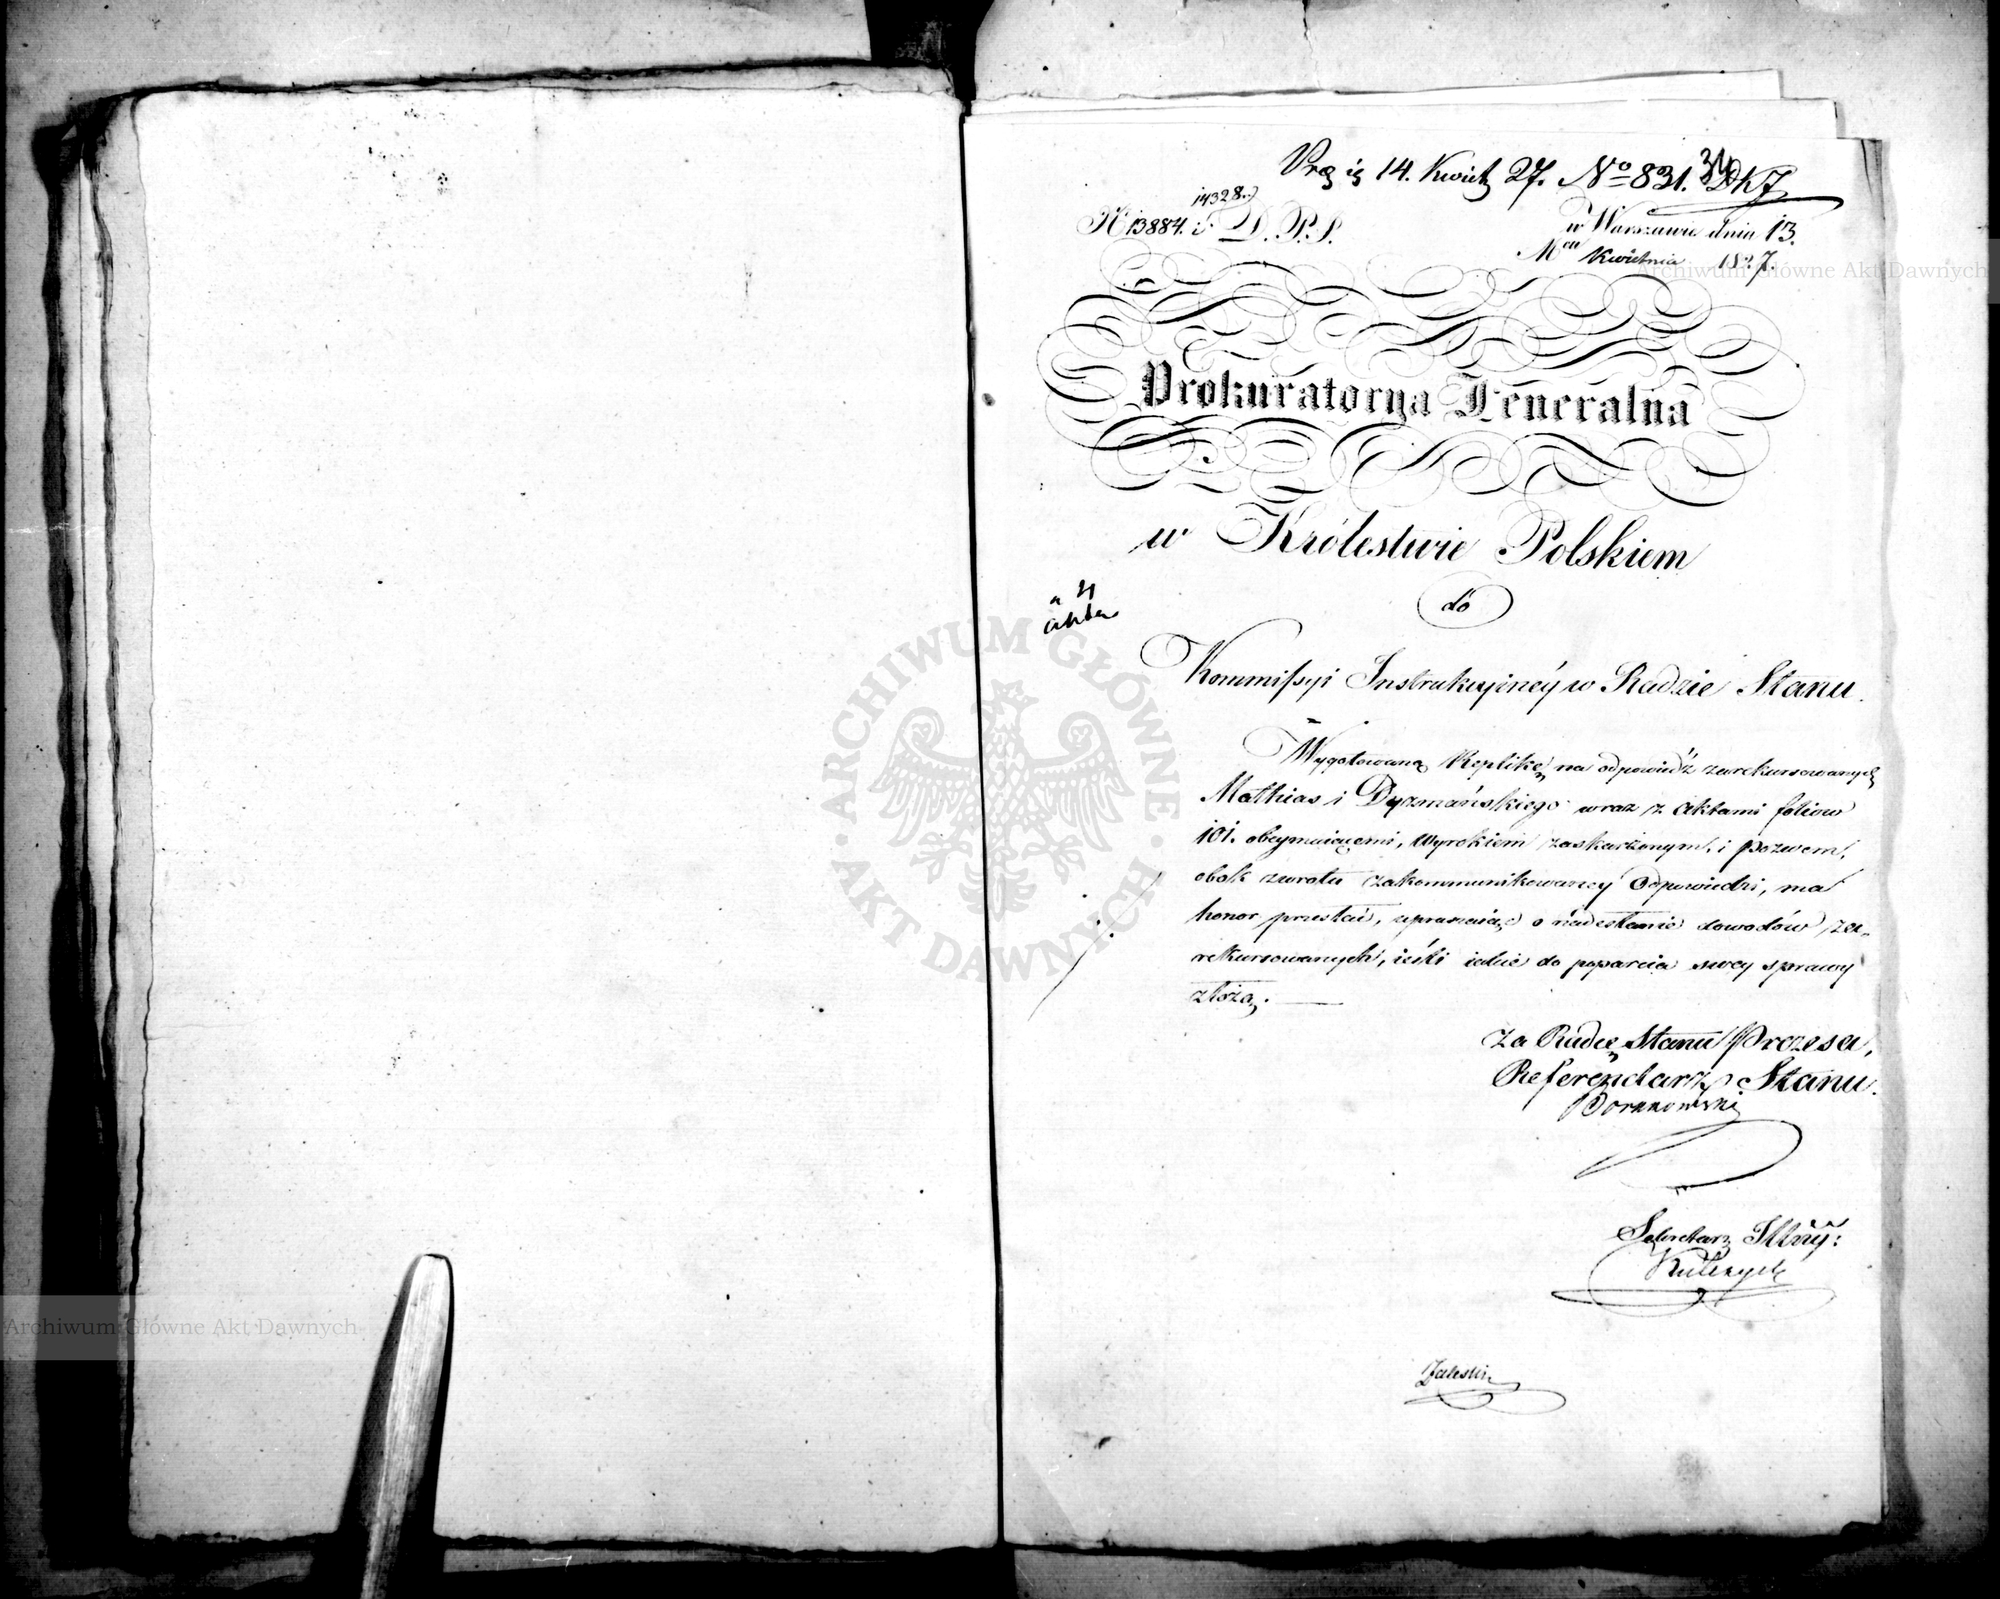 14. Kwiet 27. No 831. DKJ
34
14328.
N 13884. i D. P. S.
w Warszawie dnia 13.
Mca Kwietnia 1827.
Prokuratorya Jeneralna
w Królestwie Polskiem
do
akta
Kommissyi Instrukcyiney w Radzie Stanu.
Wygotowaną Replikę na odpowiedź zarekursowanych
Mathias i Dyzmańskiego wraz z Aktami foliow
101. obeymuiącemi, Wyrokiem zaskarżonym, i Pozwem,
obok zwrotu zakommunikowaney Odpowiedzi, ma
honor przesłać, upraszaiąc o nadesłanie dowodów za-
rekursowanych, ieśli iakie do poparcia swey sprawy
złożą.
Za Radcę Stanu Prezesa,
Referendarz Stanu.
Sekretarz Jlny:
Zaleski
ARCHIWUM GŁÓWNE AKT DAWNYCH
Archiwum Główne Akt Dawnych
Archiwum Główne Akt Dawnych